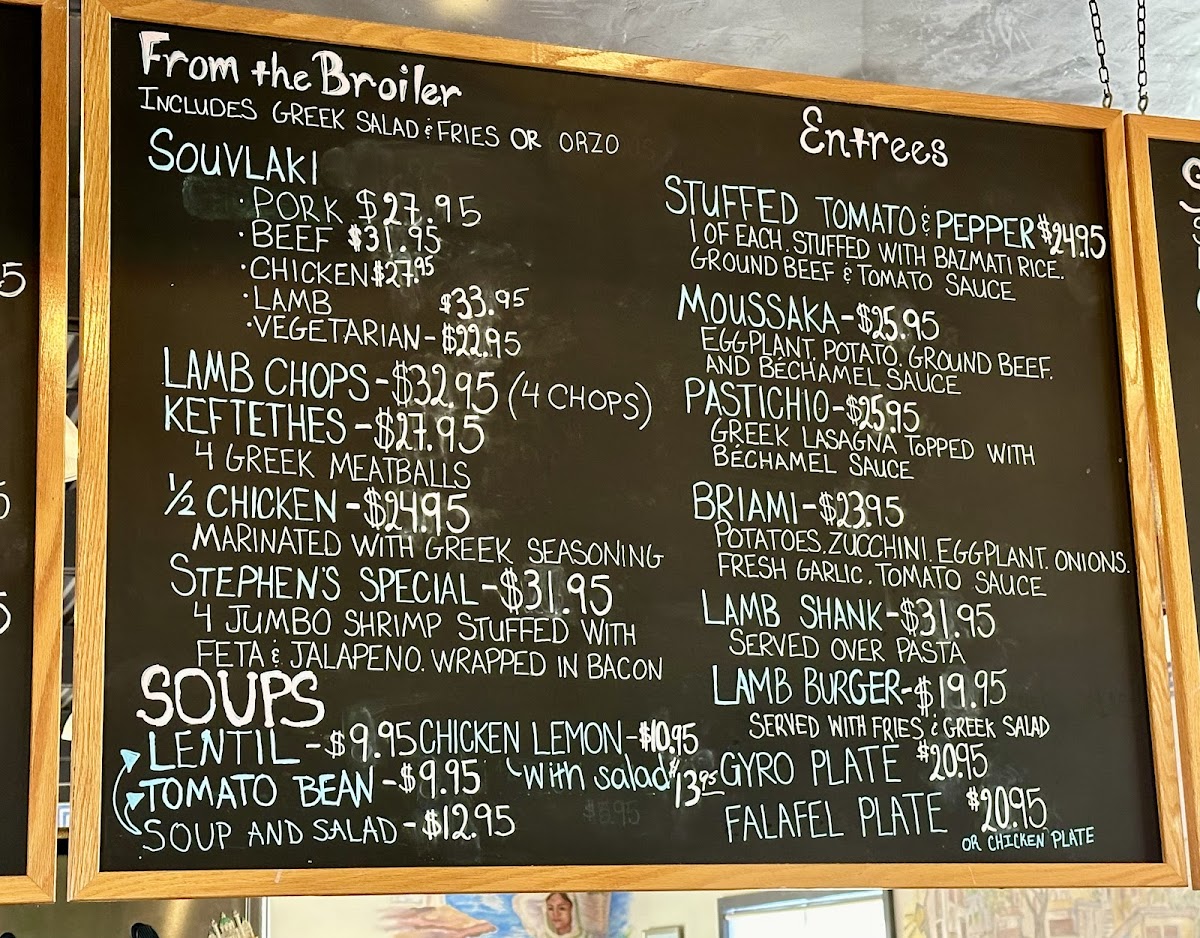 From the Broiler
INCLUDES GREEK SALAD & FRIES OR ORZO
SOUVLAKI
· PORK $27.95
· BEEF $31.95
· CHICKEN $27.95
· LAMB $33.95
· VEGETARIAN - $22.95
LAMB CHOPS - $32.95 (4 CHOPS)
KEFTETHES - $27.95
4 GREEK MEATBALLS
½ CHICKEN - $24.95
MARINATED WITH GREEK SEASONING
STEPHEN'S SPECIAL - $31.95
4 JUMBO SHRIMP STUFFED WITH
FETA & JALAPENO. WRAPPED IN BACON
SOUPS
LENTIL - $9.95
TOMATO BEAN - $9.95
SOUP AND SALAD - $12.95
CHICKEN LEMON - $10.95
with salad $13.95
Entrees
STUFFED TOMATO & PEPPER $24.95
1 OF EACH. STUFFED WITH BAZMATI RICE.
GROUND BEEF & TOMATO SAUCE
MOUSSAKA - $25.95
EGGPLANT, POTATO, GROUND BEEF.
AND BÉCHAMEL SAUCE
PASTICHIO - $25.95
GREEK LASAGNA TOPPED WITH
BÉCHAMEL SAUCE
BRIAMI - $23.95
POTATOES. ZUCCHINI. EGGPLANT. ONIONS.
FRESH GARLIC. TOMATO SAUCE
LAMB SHANK - $31.95
SERVED OVER PASTA
LAMB BURGER - $19.95
SERVED WITH FRIES & GREEK SALAD
GYRO PLATE $20.95
FALAFEL PLATE $20.95
OR CHICKEN PLATE